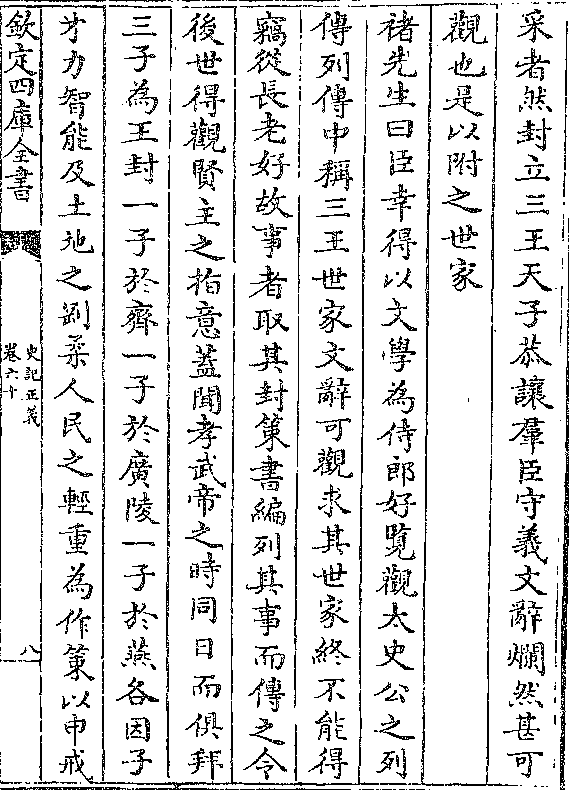 采者然封立三王天子恭讓羣臣守義文辭爛然甚可
觀也是以附之世家
褚先生曰臣幸得以文學為侍郎好覽觀太史公之列
傳列傳中稱三王世家文辭可觀求其世家終不能得
竊從長老好故事者取其封策書編列其事而傳之令
後世得觀賢主之指意蓋聞孝武帝之時同日而俱拜
三子為王封一子於齊一子於廣陵一子於燕各因子
才力智能及土地之剛柔人民之輕重為作策以申戒
欽定四庫全書
史記正義
卷六十
八